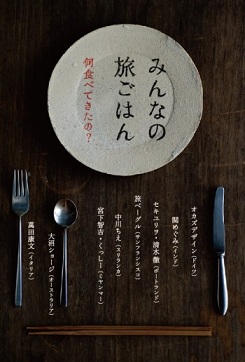 みんなの
旅ごはん
何食べてきたの?
オカズデザイン（ドイツ）
関めぐみ（インド）
セキユリヲ・清水徹（ポートランド）
旅ベーグル（サンフランシスコ）
中川ちえ（スリランカ）
宮下智吉・くっしー（ミャンマー）
大沼ショージ（オーストラリア）
萬田康文（イタリア）